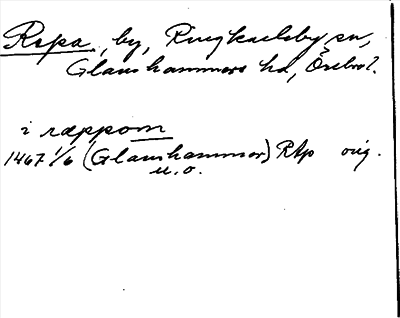 Repa, by, Ringkarleby sn,
Glanshammars hd, Örebro l.
i ræppom
1467 1/6 (Glanshammar) RAp orig.
u. o.